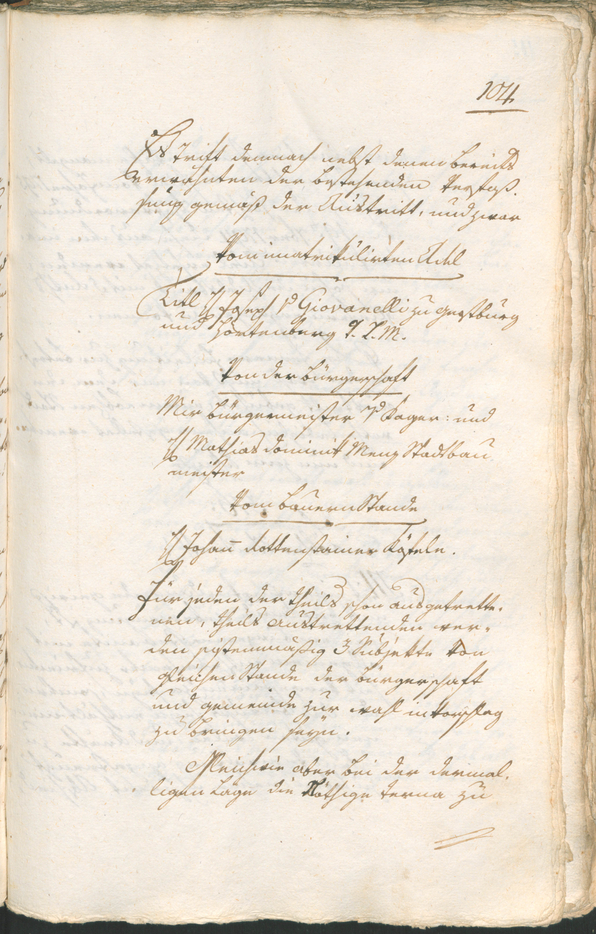 104
Es tritt demnach nebst denen bereits
erwähnten der bestehenden Verfaß-
sung gemäß der Austritt, und zwar
Vom immatrikulirten Adel
Titl H Joseph v Giovanelli zu Gerstburg
und Hörtenberg
Von der Bürgerschaft
Wir Bürgermeister v Kager: und
H Mathias Dominik Menz Stadtbau
meister
Vom Bauern Stande
H Johañ Rottensteiner Köfele.
Für jeden der theils schon ausgetrette-
nen, theils Austrettenden wer-
den systemmäßig 3 Subjekte von
gleichen Stande der Bürgerschaft
und Gemeinde zur Wahl in Vorschlag
zu bringen seyn.
Gleichwie aber bei der dermal-
ligen Lage die Nöthige Terna zu